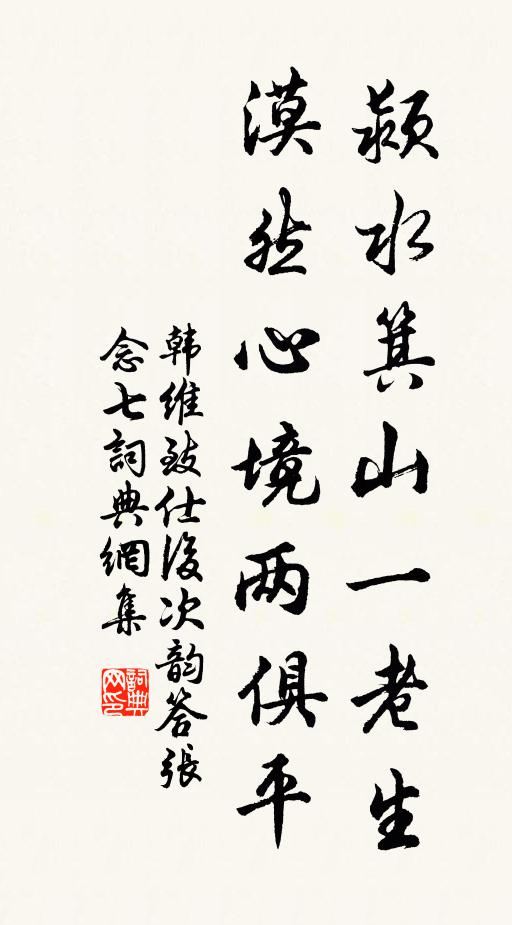 颍水箕山一老生
漠然心境两俱平
韩维致仕后次韵答張
念七詞典網集
詞典网印